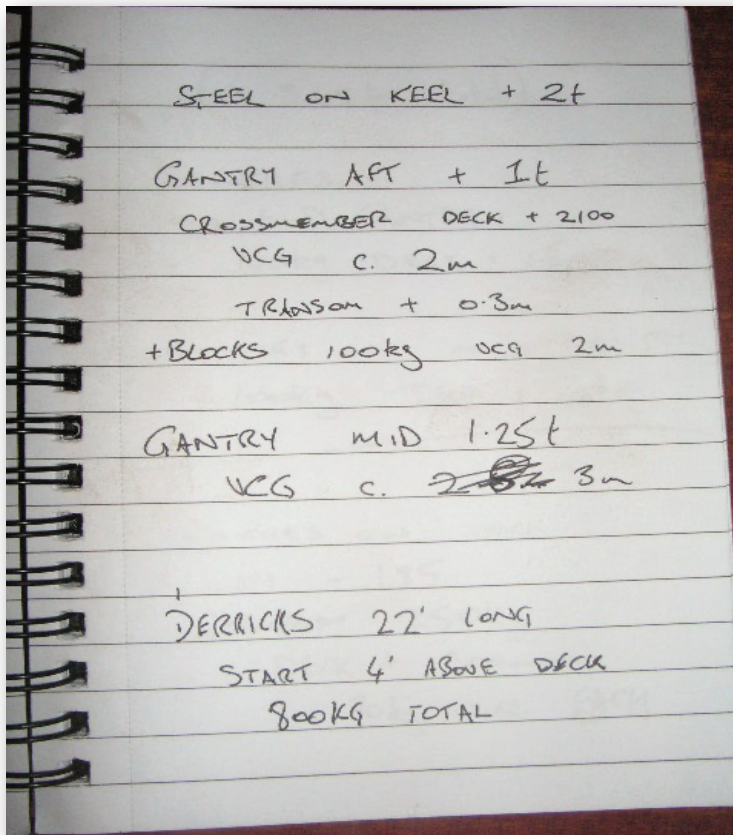 STEEL ON KEEL + 2t
GANTRY AFT + 1t
CROSSMEMBER DECK + 2100
VCG c. 2m
TRANSOM + 0.3m
+BLOCKS 100kg VCG 2m
GANTRY MID 1.25t
VCG c. 3m
DERRICKS 22' LONG
START 4' ABOVE DECK
800KG TOTAL